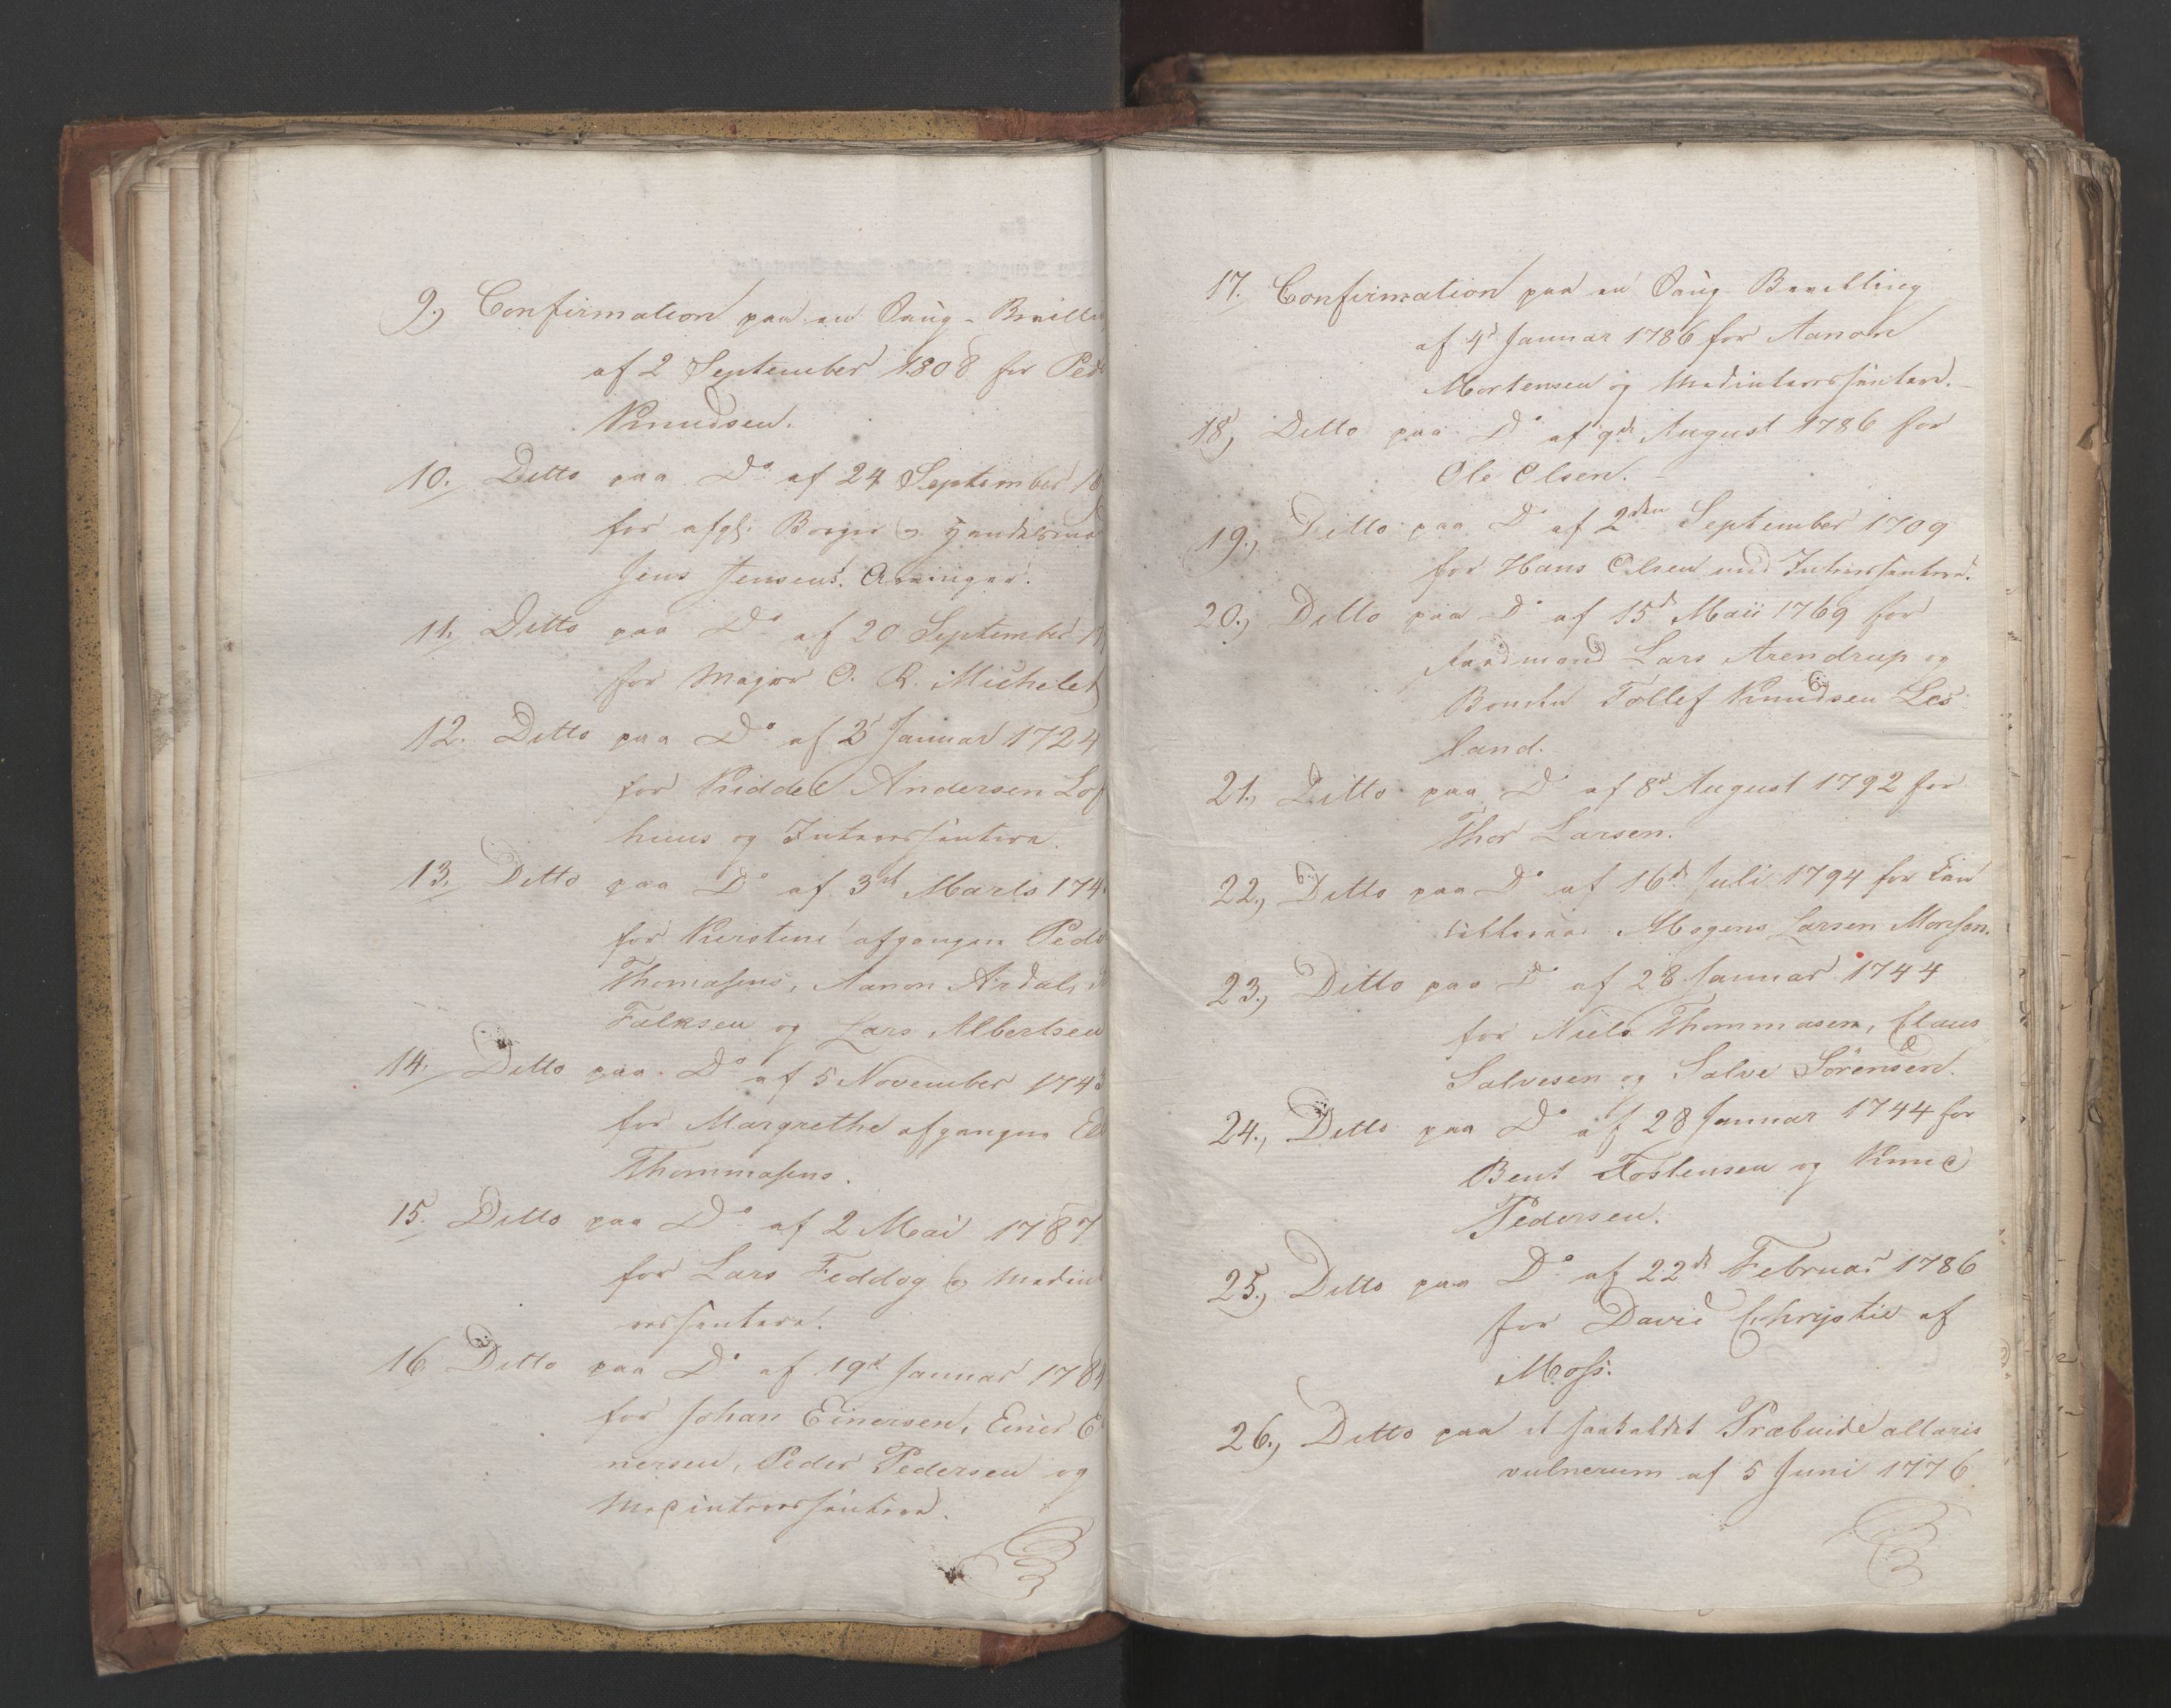 9.) Confirmation paa en Saug-Bevilli
af 2 September 1808 for Ped
Knudsen.
10. Ditto paa Do af 24 September
for afg: Borger og Handelsma
Jens Jensens Arvinger.
11. Ditto paa Do af 20 September
for Major O. R. Michelet
12. Ditto paa Do af 2 Januar 1724
for Kiddel Andersen Lof
huus og Interessentere.
13. Ditto paa Do af 3de Marts 174
for Kirstine afgangen Ped
Thomasens, Aanon Ardal,
Falksen og Lars Albertsen
14. Ditto paa Do af 5 November 174
for Margrethe afgangen
Thommasens.
15. Ditto paa Do af 2 Mai 1787
for Lars Feddog og Medint
eressentere.
16 Ditto paa Do af 19de Januar 178
for Johan Einersen, Einer E
nersen, Peder Pedersen og
Medinteressentere.
17. Confirmation paa en Saug Bevilling
af 4d Januar 1786 for Aanon
Mortensen og Medinteressentere.
18) Ditto paa Do af 9de August 1786 for
Ole Olsen.
19.) Ditto paa Do af 2den September 1709
for Hans Olsen med Interessentere.
20.) Ditto paa Do af 15d Maii 1769 for
Raadmand Lars Arendrup og
Bonden Tollef Knudsen Les
land.
21.) Ditto paa Do af 8d August 1792 for
Thor Larsen.
22.) Ditto paa Do af 16d Juli 1794 for Can
cellieraad Mogens Larsen Monson.
23.) Ditto paa Do af 28 Januar 1744
for Niels Thommasen, Claus
Salvesen og Salve Sörensen.
24.) Ditto paa Do af 28 Januar 1744 for
Bent Tostensen og Knud
Pedersen.
25.) Ditto paa Do af 22d Februar 1786
for David Chrystie af
Moss.
26.) Ditto paa et saakaldet Præbende altaris
vulnerum af 5 Juni 1776